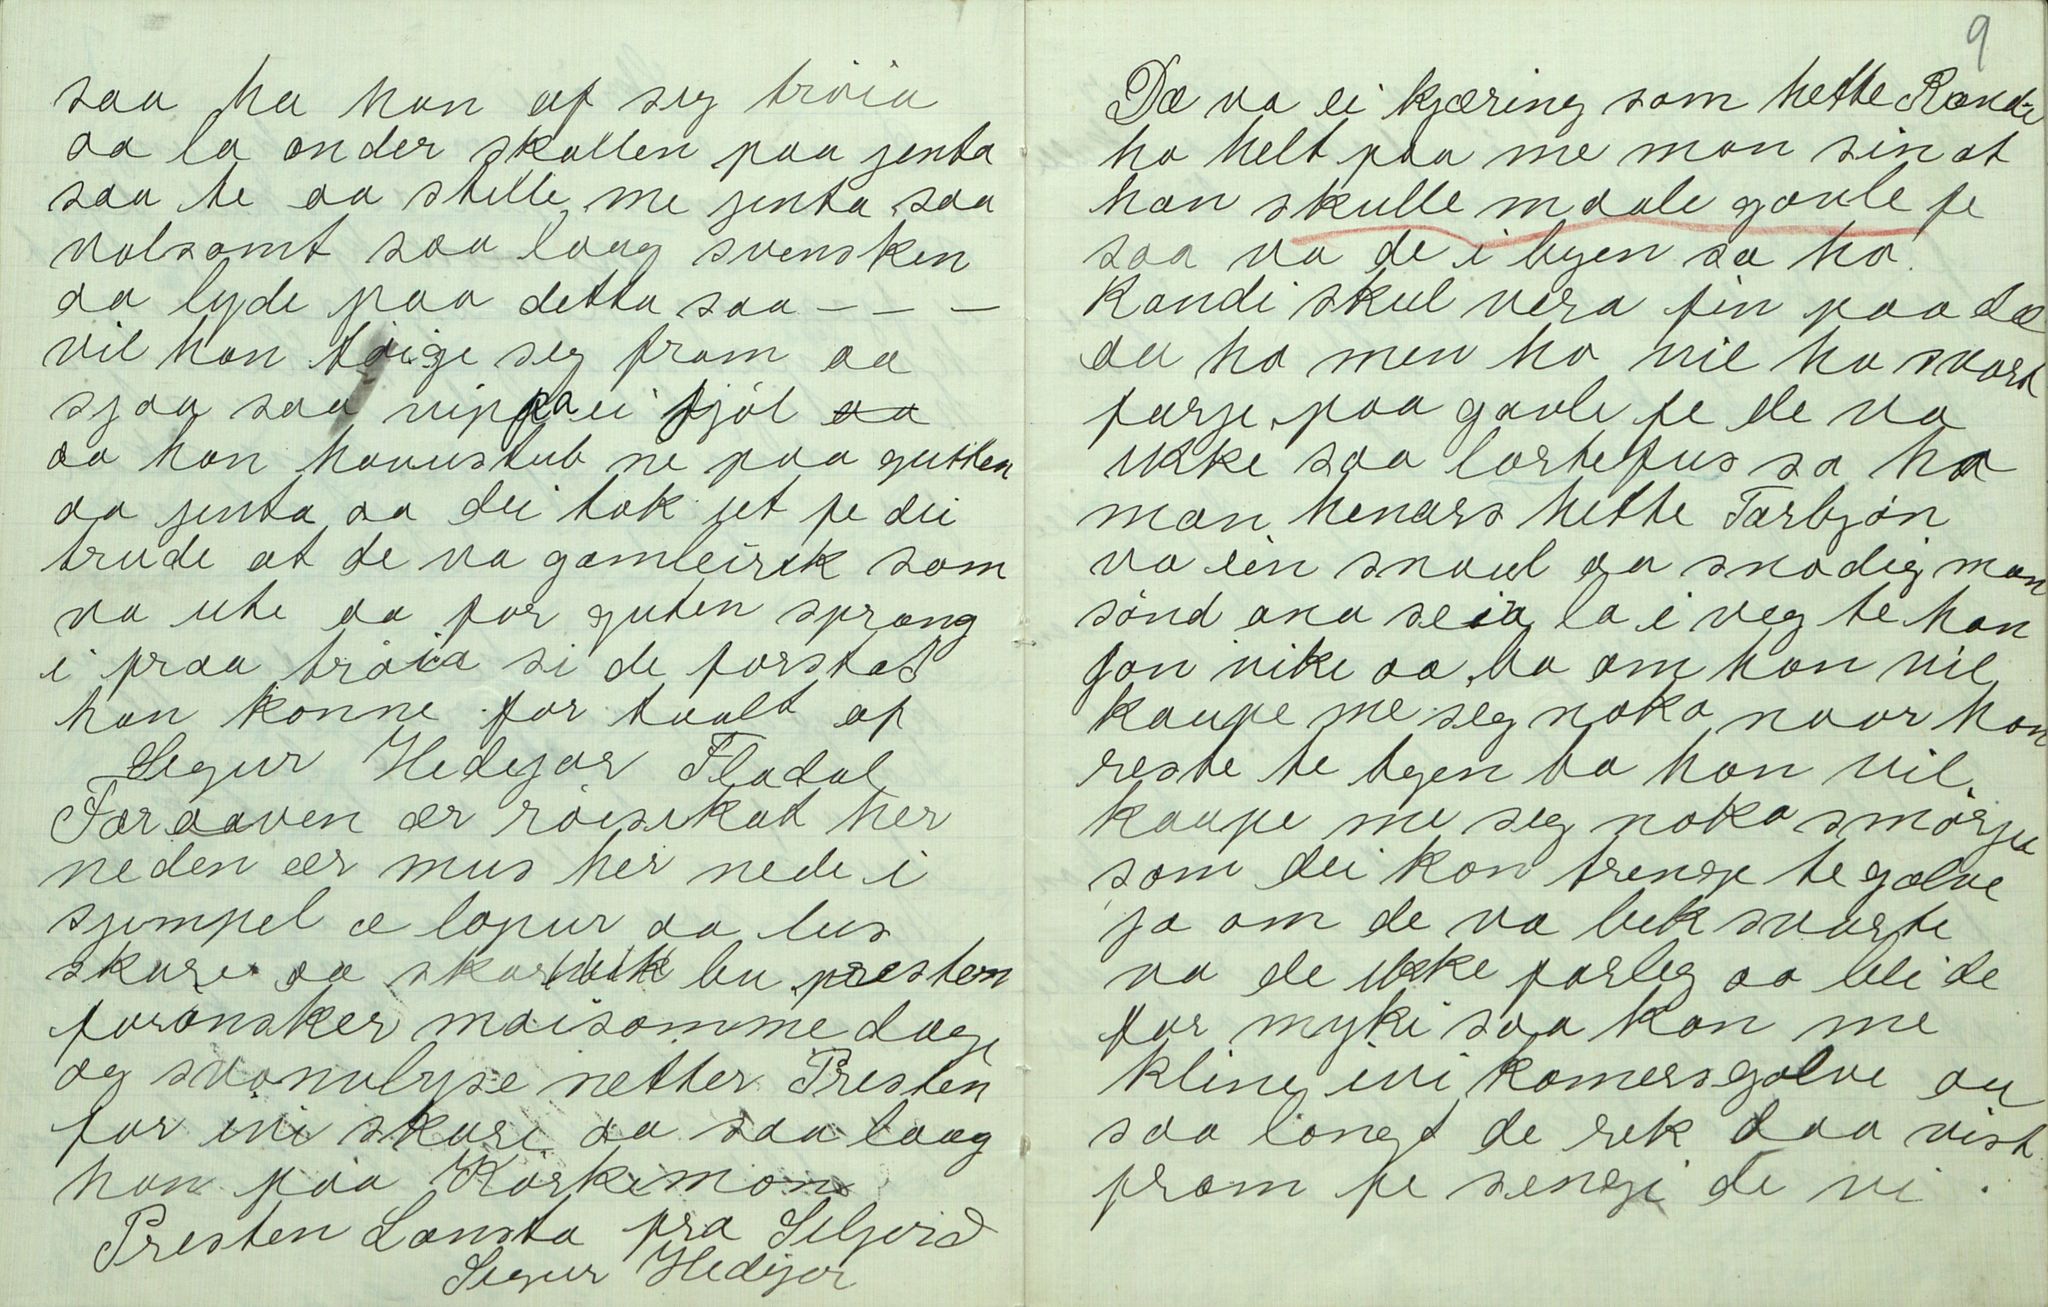 saa ha han af seg tröia
aa la onder skallen paa jenta
saa te aa stelle me jenta saa
valsomt saa laag svensken
aa lyde paa detta saa - - -
vil han töige seg fram aa
sjaa saa vippa ei fjöl
aa han havustub ne paa gutten
aa jenta aa dei tok jet fe dei
trude at de va gamleirik som
va ute aa for guten sprang
i fraa tröia si de forstod
han konne for taalt af
Segur Hedejor Fladal
For aaven ær röisekat her
neden ær mus her nede i
sjimpel æ lopur aa lus
skare aa bu presten
forönsker möisomme dage
og svönnlyse netter Presten
for ivi skare aa saa laag
han paa Körkimon
Presten Lansta fra Seljord
Segur Hedejor
9
Dæ va ei kjæring som hette Randi
ho helt paa me man sin at
han skulle maale gaale fe
saa va de i byen sa ho
Randi skul vera fin paa dæ
au ho men ho vil ha svart
farje paa gaale fe de va
ikke saa lortefus sa ho
man henars hette Tarbjön
va ein snaul aa snodig man
sönd ana seia la i veg te han
Jon vike aa ba om han vil
kaupe me seg noko naar han
reste te byen ba han vil
kaupe me seg noko smörju
som dei kan trenge te gælve
ja om de va bek svarte
va de ikke farleg aa blei de
for myki saa kan me
kline ivi komersgælve au
saa langt de rek daa vist
fram fe sengi de vi .